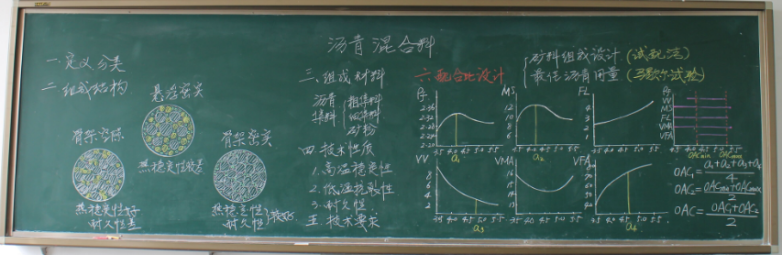 沥青混合料
一.定义分类
二.组成结构
悬浮密实
热稳定性较差
骨架空隙
热稳定性好
耐久性差
骨架密实
热稳定性
耐久性
较好
三.组成材料
沥青
集料
粗集料
细集料
矿粉
四.技术性质
1.高温稳定性
2.低温抗裂性
3.耐久性
五.技术要求
六.配合比设计
矿料组成设计(试配法)
最佳沥青用量(马歇尔试验)
MS
FL
VV
VMA
VFA
a₁
a₂
a₃
a₄
4.5 4.0 4.5 5.0 5.5
MS
FL
VMA
VFA
OACmin OACmax
OAC₁ = a₁+a₂+a₃+a₄ / 4
OAC₂ = OACmin+OACmax / 2
OAC = OAC₁+OAC₂ / 2